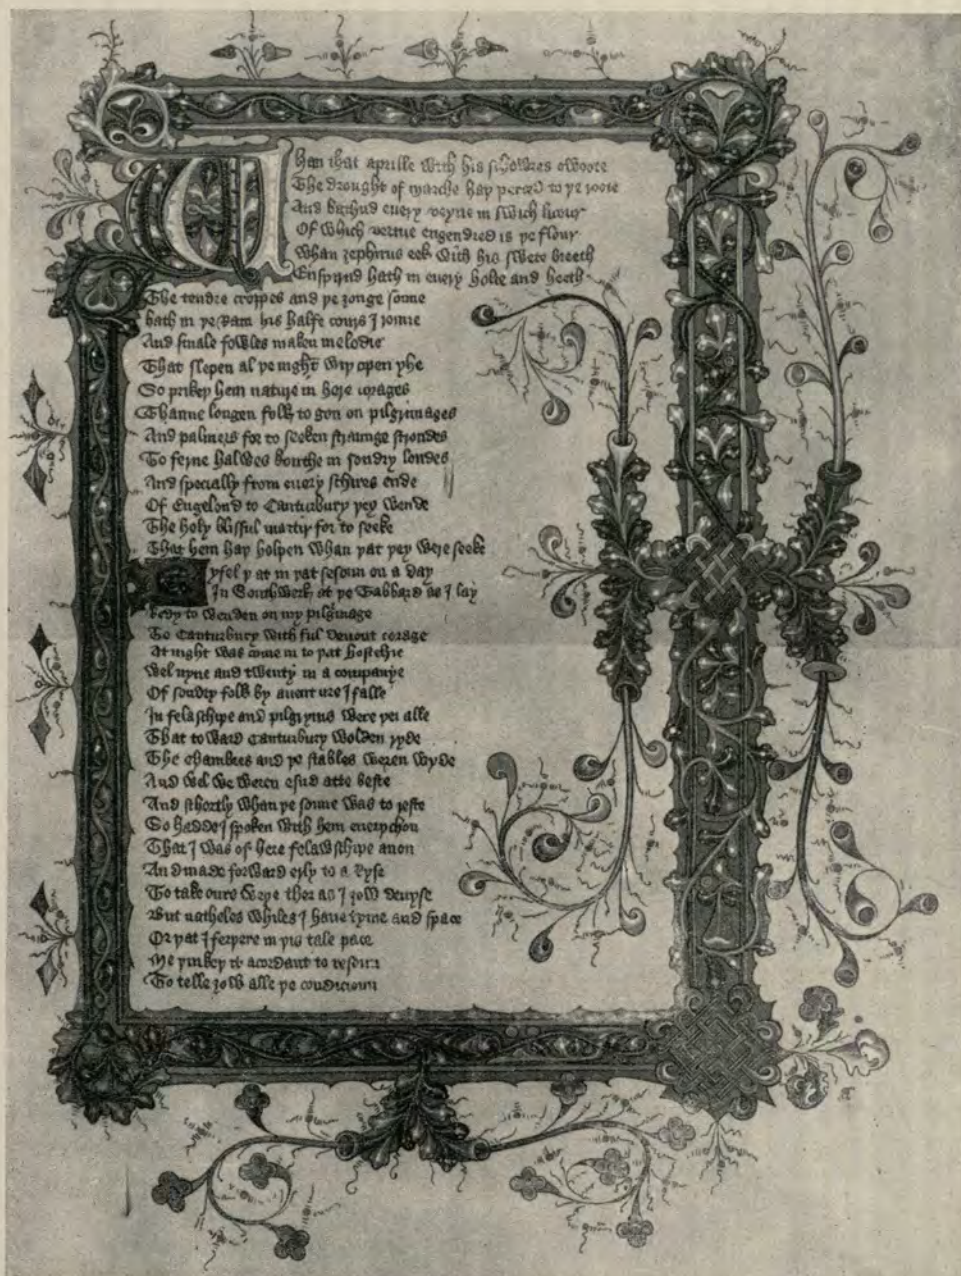 Whan that aprille with his schowres swoote
The drought of marche haþ perced to þe roote
And bathud euery veyne in swich licour
Of which vertue engendred is þe flour
Whan zephirus eek with his swete breeth
Enspirud hath in euery holte and heeth
The tendre croppes and þe ȝonge sonne
hath in þe Ram his halfe cours I ronne
And smale fowles maken melodie
That slepen al þe night wiþ open yhe
So prikeþ hem nature in here corages
Thanne longen folk to gon on pilgrimages
And palmers for to seeken straunge strondes
To ferne halwes kouthe in sondry londes
And specially from euery schires ende
Of Engelond to Canturbury þey wende
The holy blisful martir for to seeke
That hem haþ holpen whan þat þey were seeke
Byfel þat in þat sesoun on a day
In Southwerk at þe Tabbard as I lay
Redy to wenden on my pilgrimage
To Canturbury with ful deuout corage
At night was come in to þat hostelrie
Wel nyne and twenty in a companye
Of sondry folk by auenture I falle
In felaschipe and pilgryms were þei alle
That to ward Canturbury wolden ryde
The chambres and þe stables weren wyde
And wel we weren esud atte beste
And schortly whan þe sonne was to reste
So hadde I spoken with hem euerychon
That I was of here felawschipe anon
And made forward erly to a ryse
To take oure weye ther as I ȝow deuyse
But natheles whiles I haue tyme and space
Or þat I ferþere in þis tale pace
Me þinkeþ it acordant to resoun
To telle ȝow alle þe condicioun